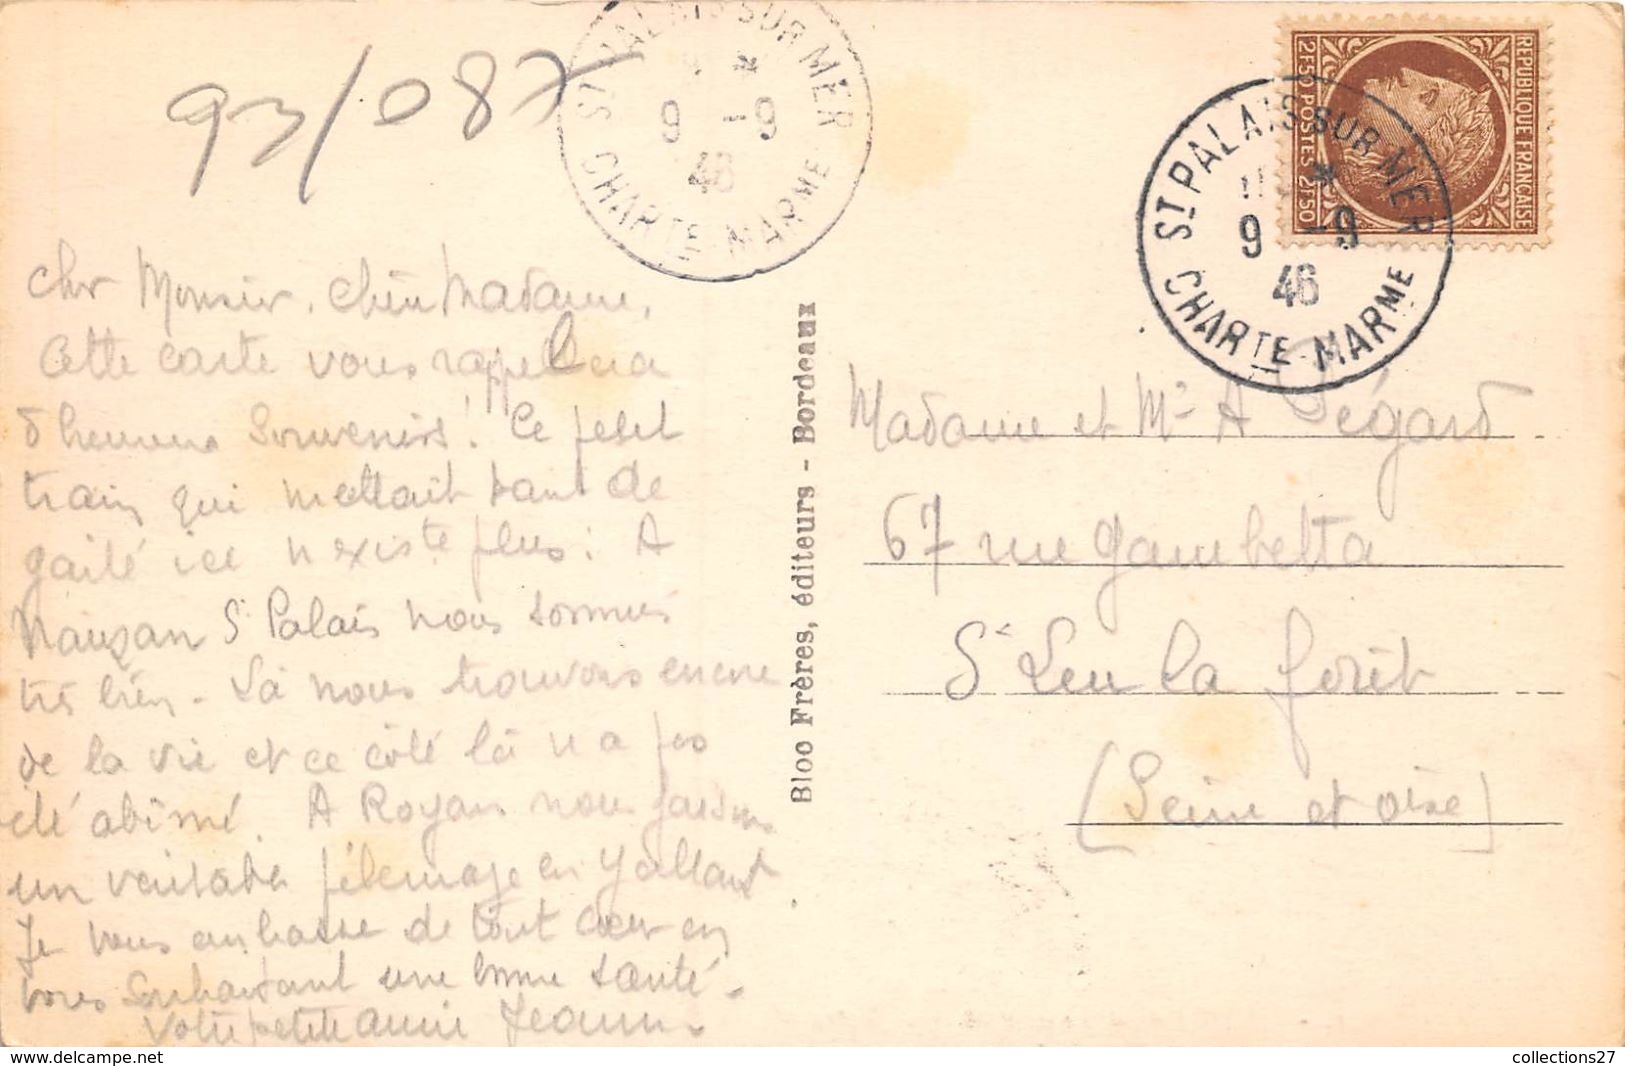 93/087
ST PALAIS SUR MER
9 -9
46
CHARTE-MARME
Cher Monsieur, chère Madame,
Cette carte vous rappellera
d'heureux souvenirs! Ce petit
train qui mettait tant de
gaité ici n'existe plus : A
Nauzan St Palais nous sommes
très bien - Là nous trouvons encore
de la vie et ce côté là n'a pas
été abimé. A Royan nous faisons
un véritable pélerinage en y allant
Je vous embrasse de tout cœur en
vous souhaitant une bonne santé -
Votre petite amie Jeanne
Bloo Frères, éditeurs - Bordeaux
REPUBLIQUE FRANCAISE
2F50 POSTES 2F50
ST PALAIS SUR MER
9 -9
46
CHARTE-MARME
Madame et Mr A Ségard
67 rue Gambetta
St Leu la forêt
(Seine et oise)
collections27